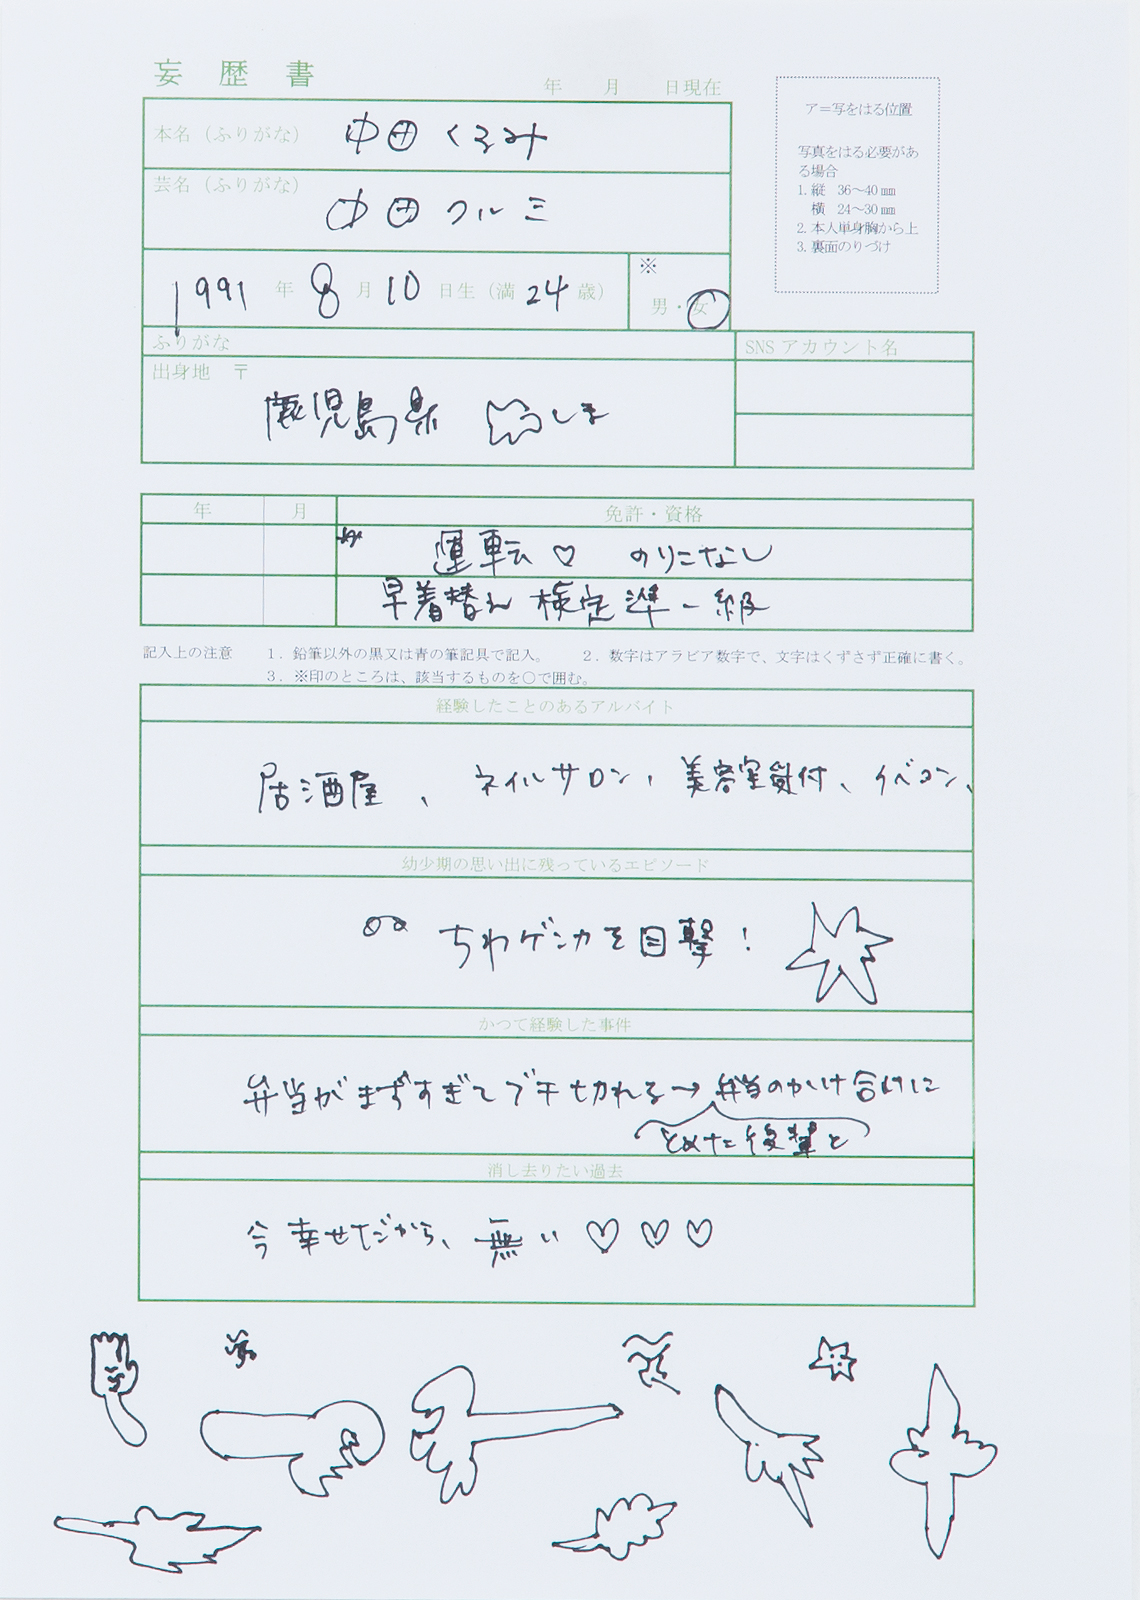 妄歴書
年 月 日現在
ア=写をはる位置
写真をはる必要があ
る場合
1. 縦 36〜40㎜
横 24〜30㎜
2. 本人単身胸から上
3. 裏面のりづけ
本名（ふりがな） 中田くるみ
芸名（ふりがな） 中田クルミ
1991 年 8 月 10 日生（満 24 歳）
※
男・女
ふりがな
SNS アカウント名
出身地 〒
鹿児島県 しま
年 月 免許・資格
運転♡ のりこなし
早着替え 検定準一級
記入上の注意 1. 鉛筆以外の黒又は青の筆記具で記入。 2. 数字はアラビア数字で、文字はくずさず正確に書く。
3. ※印のところは、該当するものを○で囲む。
経験したことのあるアルバイト
居酒屋、ネイルサロン、美容室受付、イベコン、
幼少期の思い出に残っているエピソード
ちわゲンカを目撃！
かつて経験した事件
弁当がまずすぎてブチ切れる→弁当のかけ合いに
とめた後輩と
消し去りたい過去
今幸せだから、無い♡♡♡